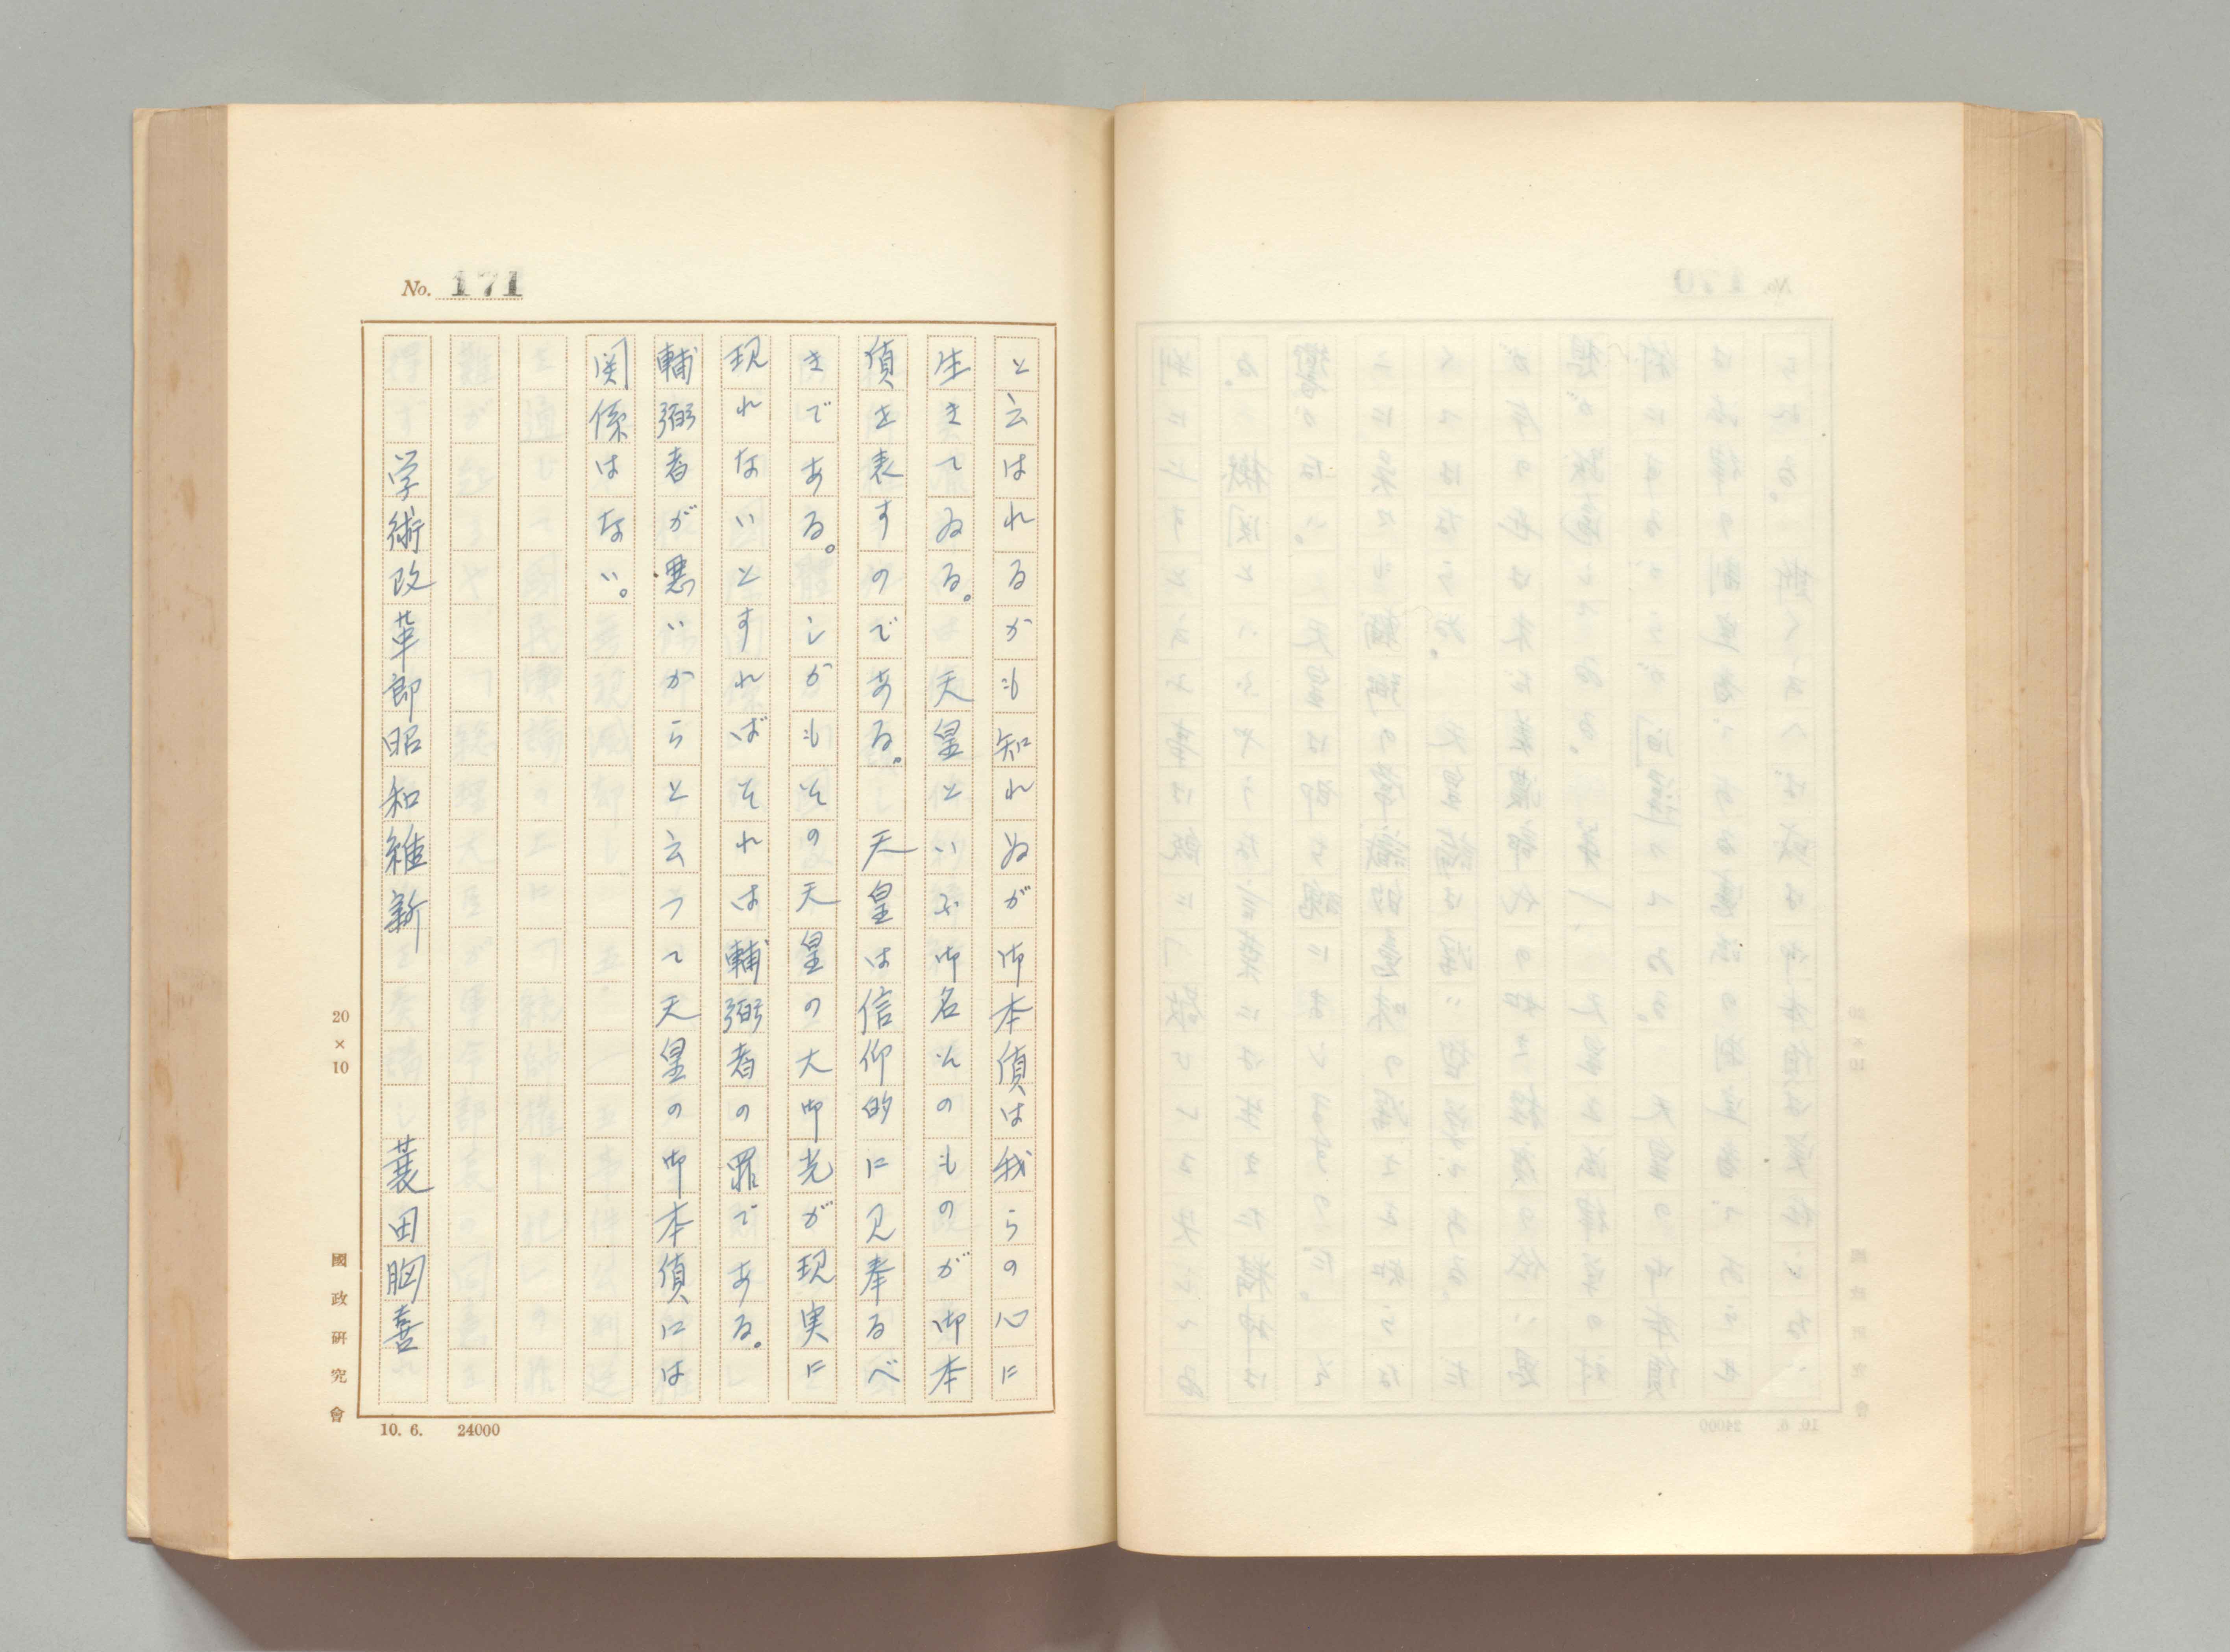 No. 171
と云はれるかも知れぬが御本質は我らの心に
生きてゐる。天皇といふ御名そのものが御本
質を表すのである。天皇は信仰的に見奉るべ
きである。しかもその天皇の大御光が現実に
現れないとすればそれは輔弼者の罪である。
輔弼者が悪いからと云つて天皇の御本質には
関係はない。
学術改革即昭和維新 蓑田胸喜
20×10
國政研究會
10. 6. 24000